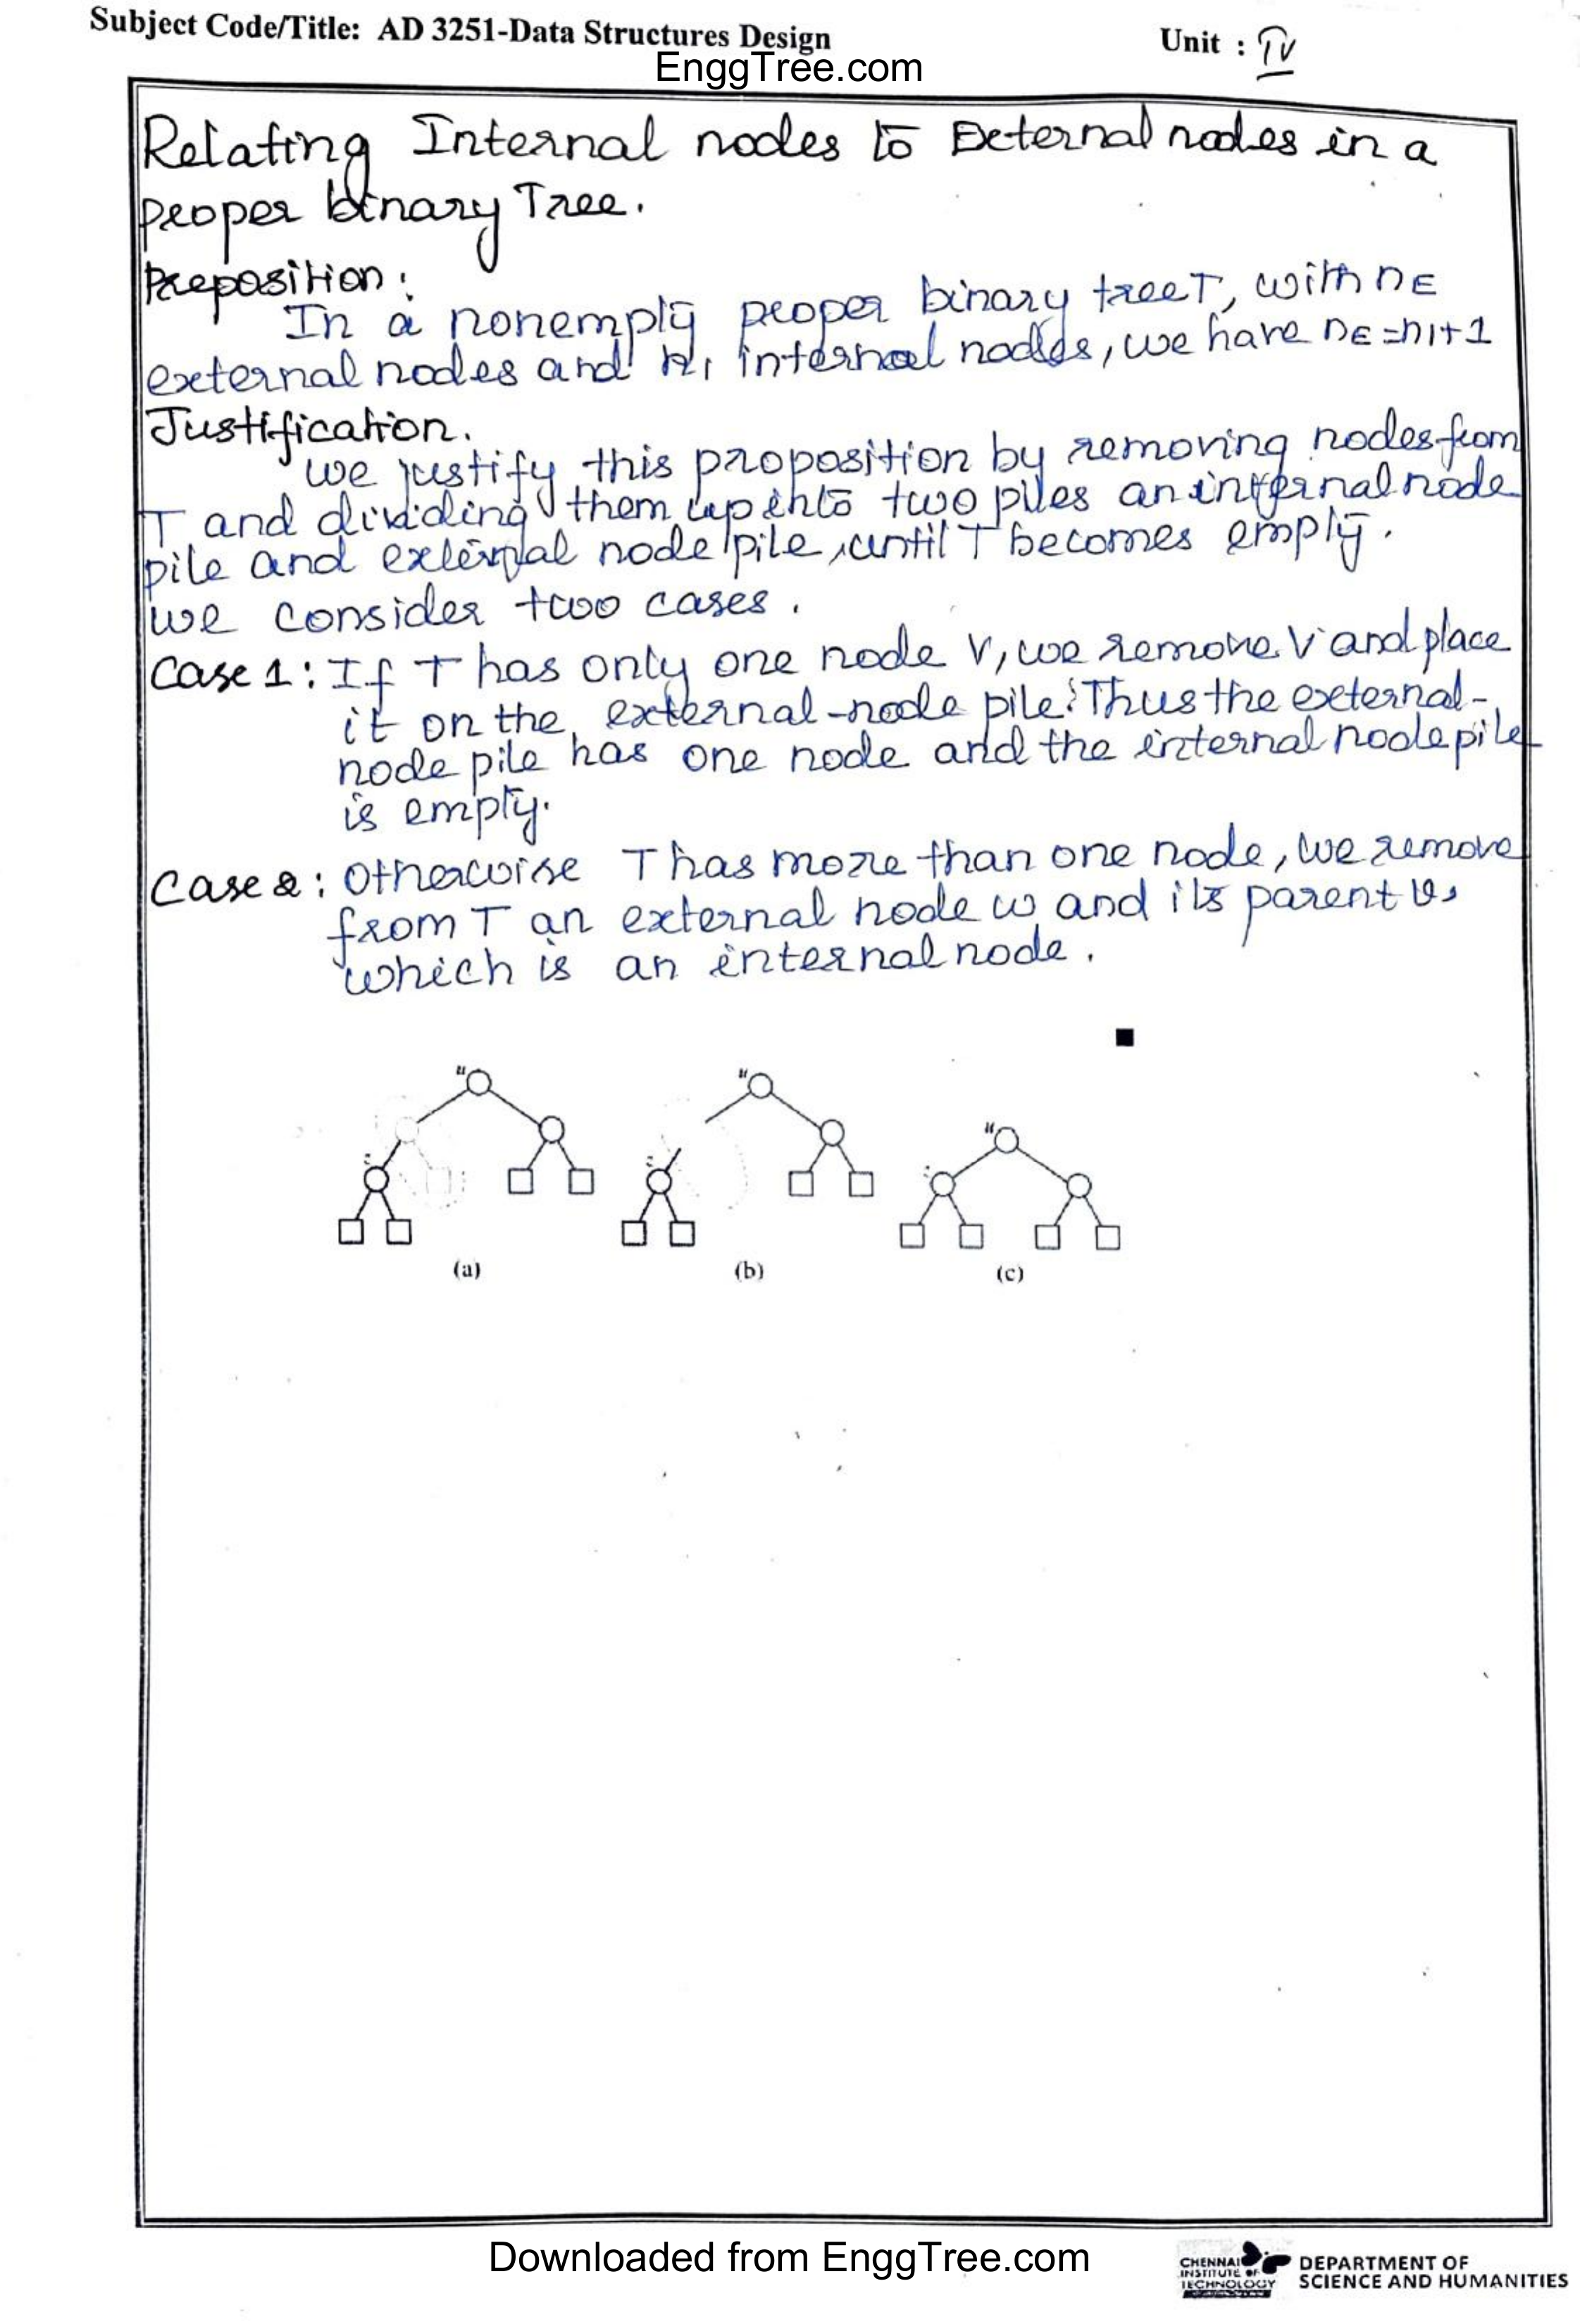 Subject Code/Title: AD 3251-Data Structures Design
Unit : IV
EnggTree.com
Relating Internal nodes to External nodes in a
proper binary Tree.
Preposition:
In a nonempty proper binary tree T, with nE
external nodes and nI internal nodes, we have nE = nI + 1
Justification.
we justify this proposition by removing nodes from
T and dividing them up into two piles an internal node
pile and external node pile, until T becomes empty.
we consider two cases.
Case 1: If T has only one node V, we remove V and place
it on the external-node pile. Thus the external-
node pile has one node and the internal node pile
is empty.
Case 2: Otherwise T has more than one node, we remove
from T an external node w and its parent v,
which is an internal node.
u
u
u
z
z
z
(a)
(b)
(c)
Downloaded from EnggTree.com
CHENNAI
INSTITUTE OF
TECHNOLOGY
DEPARTMENT OF
SCIENCE AND HUMANITIES